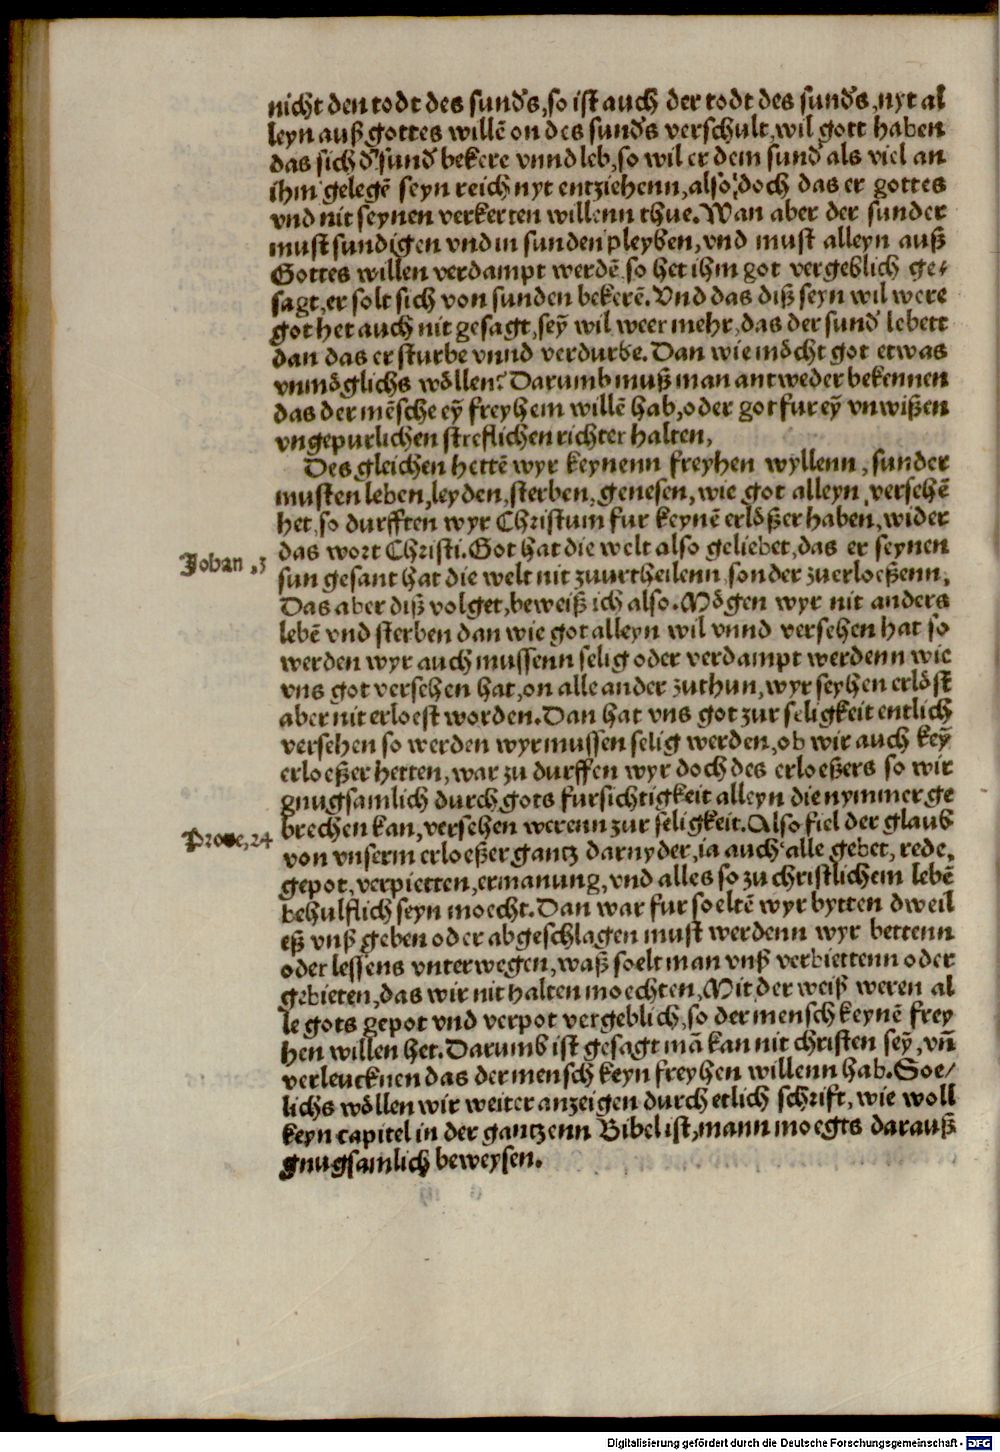 nicht den todt des sunds, so ist auch der todt des sunds, nyt al
leyn auß gottes willē on des sunds verschult, wil gott haben
das sich d' sund bekere vnnd leb, so wil er dem sund als viel an
ihm gelegē seyn reich nyt entziehenn, also doch das er gottes
vnd nit seynen verkerten willenn thue. Wan aber der sunder
must sundigen vnd in sunden pleyben, vnd must alleyn auß
Gottes willen verdampt werdē, so het ihm got vergeblich ge⸗
sagt, er solt sich von sunden bekerē. Vnd das diß seyn wil were
got het auch nit gesagt, sey̅ wil weer mehr, das der sund lebett
dan das er sturbe vnnd verdurbe. Dan wie möcht got etwas
vnmöglichs wöllen? Darumb muß man antweder bekennen
das der mēsche ey̅ freyhem willē hab, oder got fur ey̅ vnwißen
vngepurlichen streflichen richter halten,
Des gleichen hettē wyr keynenn freyhen wyllenn, sunder
musten leben, leyden, sterben, genesen, wie got alleyn versehē
het, so durfften wyr Christum fur keynē erlößer haben, wider
das wort Christi. Got hat die welt also geliebet, das er seynen
Johan .3
sun gesant hat die welt nit zuurtheilenn sonder zuerloeßenn,
Das aber diß volget, beweiß ich also. Mögen wyr nit anders
lebē vnd sterben dan wie got alleyn wil vnnd versehen hat so
werden wyr auch mussenn selig oder verdampt werdenn wie
vns got versehen hat, on alle ander zuthun, wyr seyhen erlöst
aber nit erloest worden. Dan hat vns got zur seligkeit entlich
versehen so werden wyr mussen selig werden, ob wir auch key̅
erloeßer hetten, war zu durffen wyr doch des erloeßers so wir
gnugsamlich durch gots fursichtigkeit alleyn die nymmer ge
brechen kan, versehen werenn zur seligkeit. Also fiel der glaub
Proue, 24
von vnserm erloeßer gantz darnyder, ia auch alle gebet, rede,
gepot, verpietten, ermanung, vnd alles so zu christlichem lebē
behulflich seyn moecht. Dan war fur soeltē wyr bytten dweil
eß vnß geben oder abgeschlagen must werdenn wyr bettenn
oder lessens vnterwegen, waß soelt man vnß verbiettenn oder
gebieten, das wir nit halten moechten, Mit der weiß weren al
le gots gepot vnd verpot vergeblich, so der mensch keynē frey
hen willen het. Darumb ist gesagt mā kan nit christen sey̅, vn̄
verleucknen das der mensch keyn freyhen willenn hab. Soe⸗
lichs wöllen wir weiter anzeigen durch etlich schrift, wie woll
keyn capitel in der gantzenn Bibel ist, mann moegts darauß
gnugsamlich beweysen.
Digitalisierung gefördert durch die Deutsche Forschungsgemeinschaft - DFG